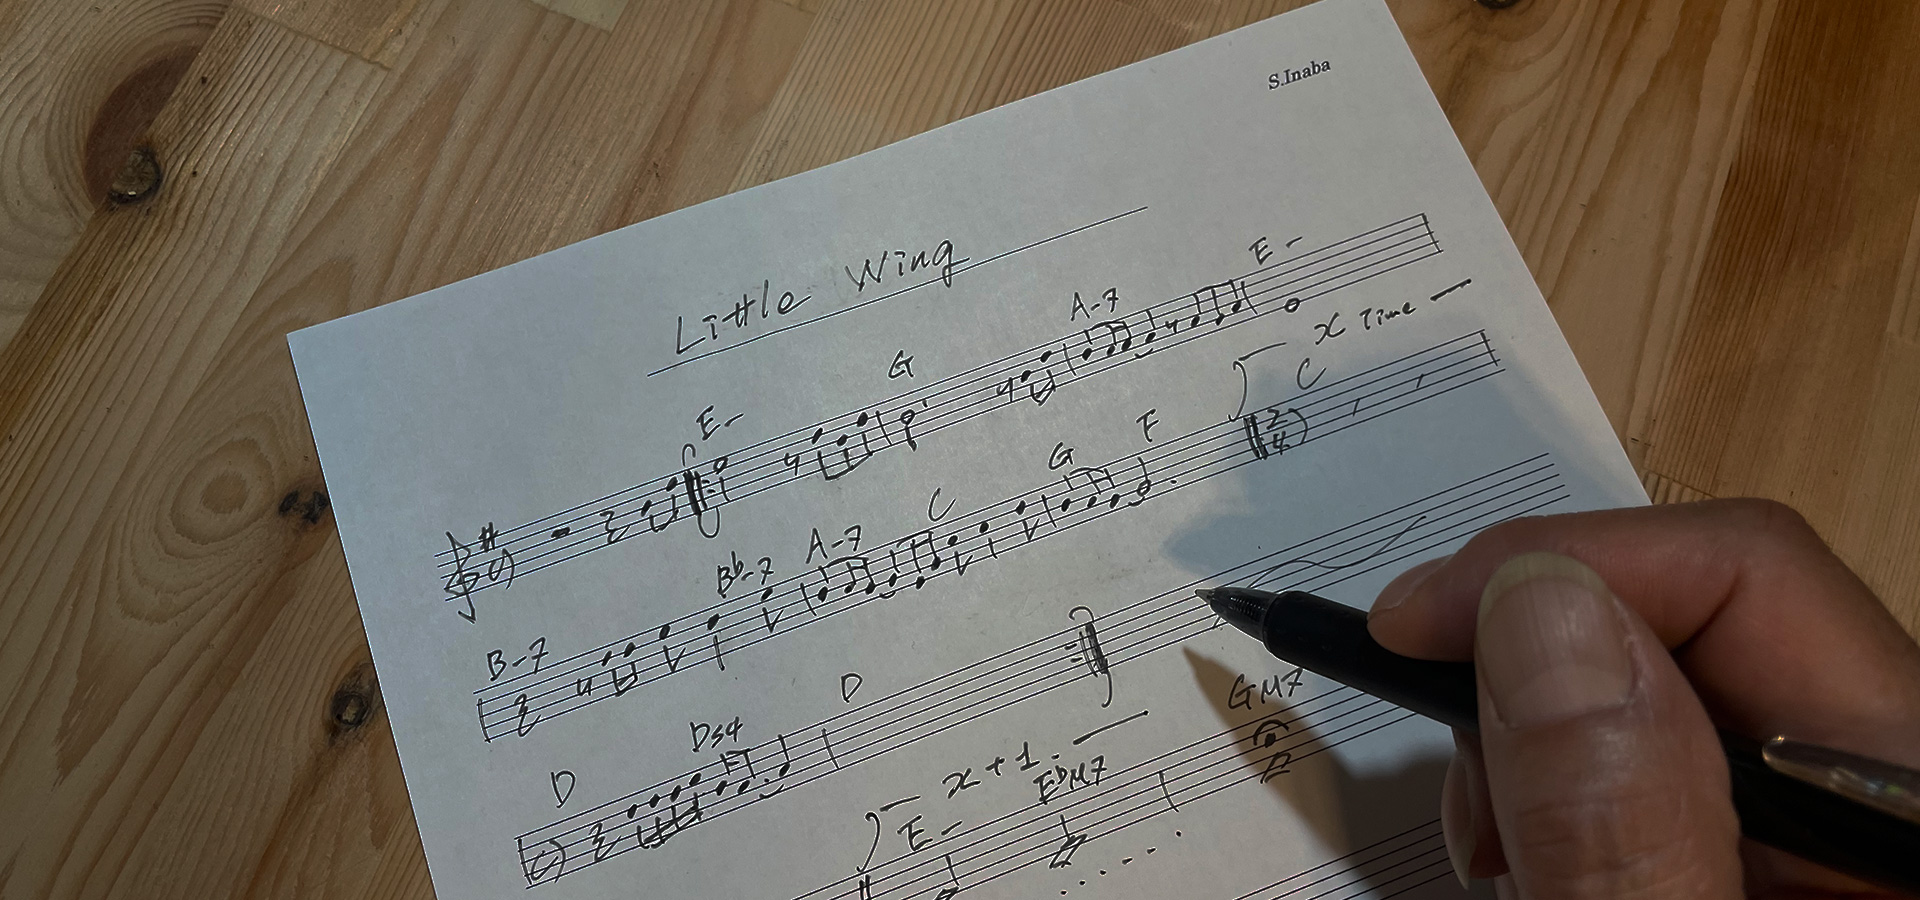 S.Inaba
Little Wing
E- G A-7 E-
x Time
B-7 Bb-7 A-7 C G F C
2/4
D Ds4 D
x+1.
E- EbM7 GM7